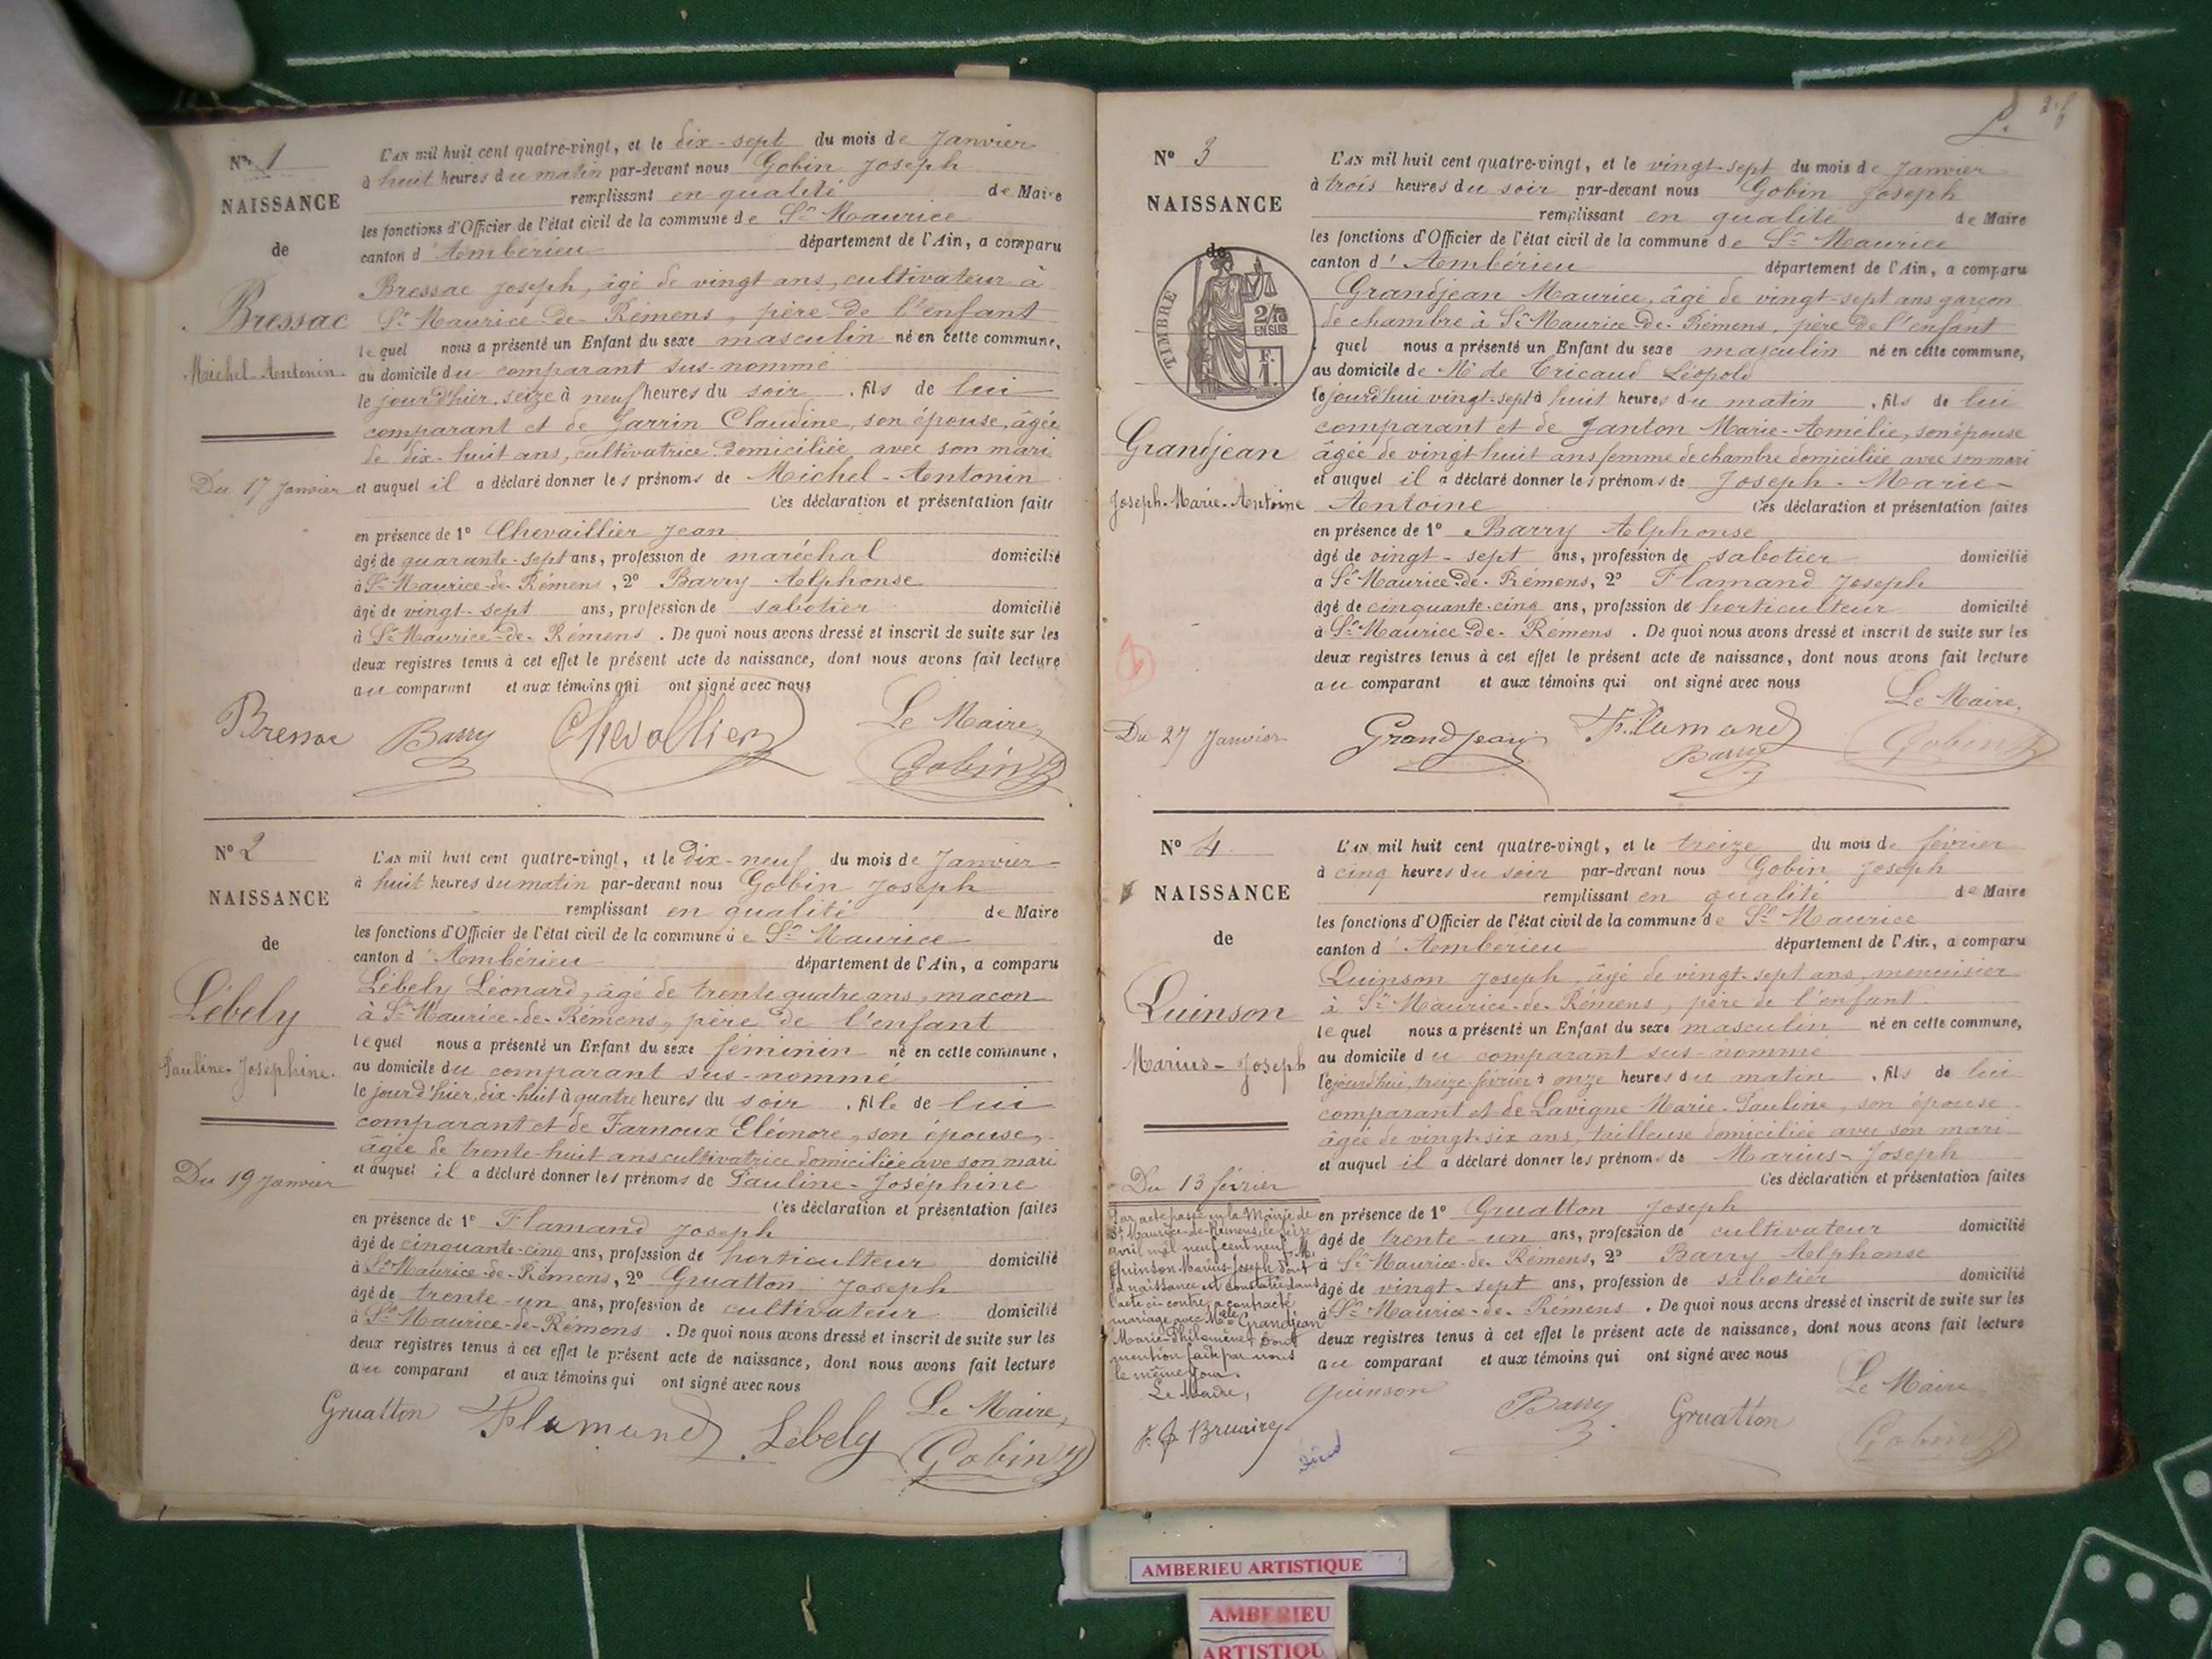 Nº 1
NAISSANCE
de
Bressac
Michel-Antonin
Du 17 Janvier
L'AN mil huit cent quatre-vingt, et le dix-sept du mois de Janvier
à huit heures du matin par-devant nous Gobin Joseph
remplissant en qualité de Maire
les fonctions d'Officier de l'état civil de la commune de St Maurice
canton d'Ambérieu département de l'Ain, a comparu
Bressac Joseph, âgé de vingt ans, cultivateur à
St Maurice-de-Rémens, père de l'enfant
lequel nous a présenté un Enfant du sexe masculin né en cette commune,
au domicile du comparant sus-nommé
le jour d'hier, seize à neuf heures du soir, fils de lui
comparant et de Jarrin Claudine, son épouse, âgée
de dix-huit ans, cultivatrice domiciliée avec son mari
et auquel il a déclaré donner les prénoms de Michel-Antonin
Ces déclaration et présentation faites
en présence de 1º Chevaillier Jean
âgé de quarante-sept ans, profession de maréchal domicilié
à St Maurice-de-Rémens, 2º Barry Alphonse
âgé de vingt-sept ans, profession de sabotier domicilié
à St Maurice-de-Rémens. De quoi nous avons dressé et inscrit de suite sur les
deux registres tenus à cet effet le présent acte de naissance, dont nous avons fait lecture
au comparant et aux témoins qui ont signé avec nous
Le Maire,
Bressac Barry Chevallier Gobin
Nº 2
NAISSANCE
de
Lébely
Pauline-Joséphine.
Du 19 Janvier
L'AN mil huit cent quatre-vingt, et le dix-neuf du mois de Janvier
à huit heures du matin par-devant nous Gobin Joseph
remplissant en qualité de Maire
les fonctions d'Officier de l'état civil de la commune de St Maurice
canton d'Ambérieu département de l'Ain, a comparu
Lébely Léonard, âgé de trente quatre ans, macon
à St Maurice-de-Rémens, père de l'enfant
lequel nous a présenté un Enfant du sexe féminin né en cette commune,
au domicile du comparant sus-nommé
le jour d'hier, dix-huit à quatre heures du soir, fille de lui
comparant et de Farnoux Eléonore, son épouse,
âgée de trente-huit ans cultivatrice domiciliée ave son mari
et auquel il a déclaré donner les prénoms de Pauline-Joséphine
Ces déclaration et présentation faites
en présence de 1º Flamand Joseph
âgé de cinquante-cinq ans, profession de horticulteur domicilié
à St Maurice-de-Rémens, 2º Gruatton Joseph
âgé de trente-un ans, profession de cultivateur domicilié
à St Maurice-de-Rémens. De quoi nous avons dressé et inscrit de suite sur les
deux registres tenus à cet effet le présent acte de naissance, dont nous avons fait lecture
au comparant et aux témoins qui ont signé avec nous
Le Maire,
Gruatton Flamand Lébely Gobin
Nº 3
NAISSANCE
de
TIMBRE
2/10
EN SUS
F.
1.
Grandjean
Joseph-Marie-Antoine
Du 27 Janvier
L'AN mil huit cent quatre-vingt, et le vingt-sept du mois de Janvier
à trois heures du soir par-devant nous Gobin Joseph
remplissant en qualité de Maire
les fonctions d'Officier de l'état civil de la commune de St Maurice
canton d'Ambérieu département de l'Ain, a comparu
Grandjean Maurice, âgé de vingt-sept ans garçon
de chambre à St Maurice-de-Rémens, père de l'enfant
quel nous a présenté un Enfant du sexe masculin né en cette commune,
au domicile de Mr de Tricaud Léopold
le jourd'hui vingt-sept à huit heures du matin, fils de lui
comparant et de Janton Marie-Amélie, son épouse
âgée de vingt huit ans femme de chambre domiciliée avec son mari
et auquel il a déclaré donner les prénoms de Joseph-Marie-
Antoine Ces déclaration et présentation faites
en présence de 1º Barry Alphonse
âgé de vingt-sept ans, profession de sabotier domicilié
à St Maurice-de-Rémens, 2º Flamand Joseph
âgé de cinquante-cinq ans, profession de horticulteur domicilié
à St Maurice-de-Rémens. De quoi nous avons dressé et inscrit de suite sur les
deux registres tenus à cet effet le présent acte de naissance, dont nous avons fait lecture
au comparant et aux témoins qui ont signé avec nous
Le Maire,
Grandjean Flamand Barry Gobin
Nº 4
NAISSANCE
de
Quinson
Marius-Joseph
Du 13 février
Par acte passé en la Mairie de
St Maurice-de-Rémens, le seize
avril mil neuf cent neuf, M.
Quinson Marius-Joseph dont
la naissance est constatée dans
l'acte ci-contre, a contracté
mariage avec Melle Grandjean
Marie-Philomène, dont
mention faite par nous
le même jour.
Le Maire,
Bruaire
L'AN mil huit cent quatre-vingt, et le treize du mois de février
à cinq heures du soir par-devant nous Gobin Joseph
remplissant en qualité de Maire
les fonctions d'Officier de l'état civil de la commune de St Maurice
canton d'Ambérieu département de l'Ain, a comparu
Quinson Joseph, âgé de vingt-sept ans, menuisier
à St Maurice-de-Rémens, père de l'enfant
lequel nous a présenté un Enfant du sexe masculin né en cette commune,
au domicile du comparant sus-nommé
le jourd'hui, treize février à onze heures du matin, fils de lui
comparant et de Lavigne Marie-Pauline, son épouse
âgée de vingt-six ans, tailleuse domiciliée avec son mari
et auquel il a déclaré donner les prénoms de Marius-Joseph
Ces déclaration et présentation faites
en présence de 1º Gruatton Joseph
âgé de trente-un ans, profession de cultivateur domicilié
à St Maurice-de-Rémens, 2º Barry Alphonse
âgé de vingt-sept ans, profession de sabotier domicilié
à St Maurice-de-Rémens. De quoi nous avons dressé et inscrit de suite sur les
deux registres tenus à cet effet le présent acte de naissance, dont nous avons fait lecture
au comparant et aux témoins qui ont signé avec nous
Le Maire
Quinson Barry Gruatton Gobin
AMBERIEU ARTISTIQUE
AMBERIEU
ARTISTIQU